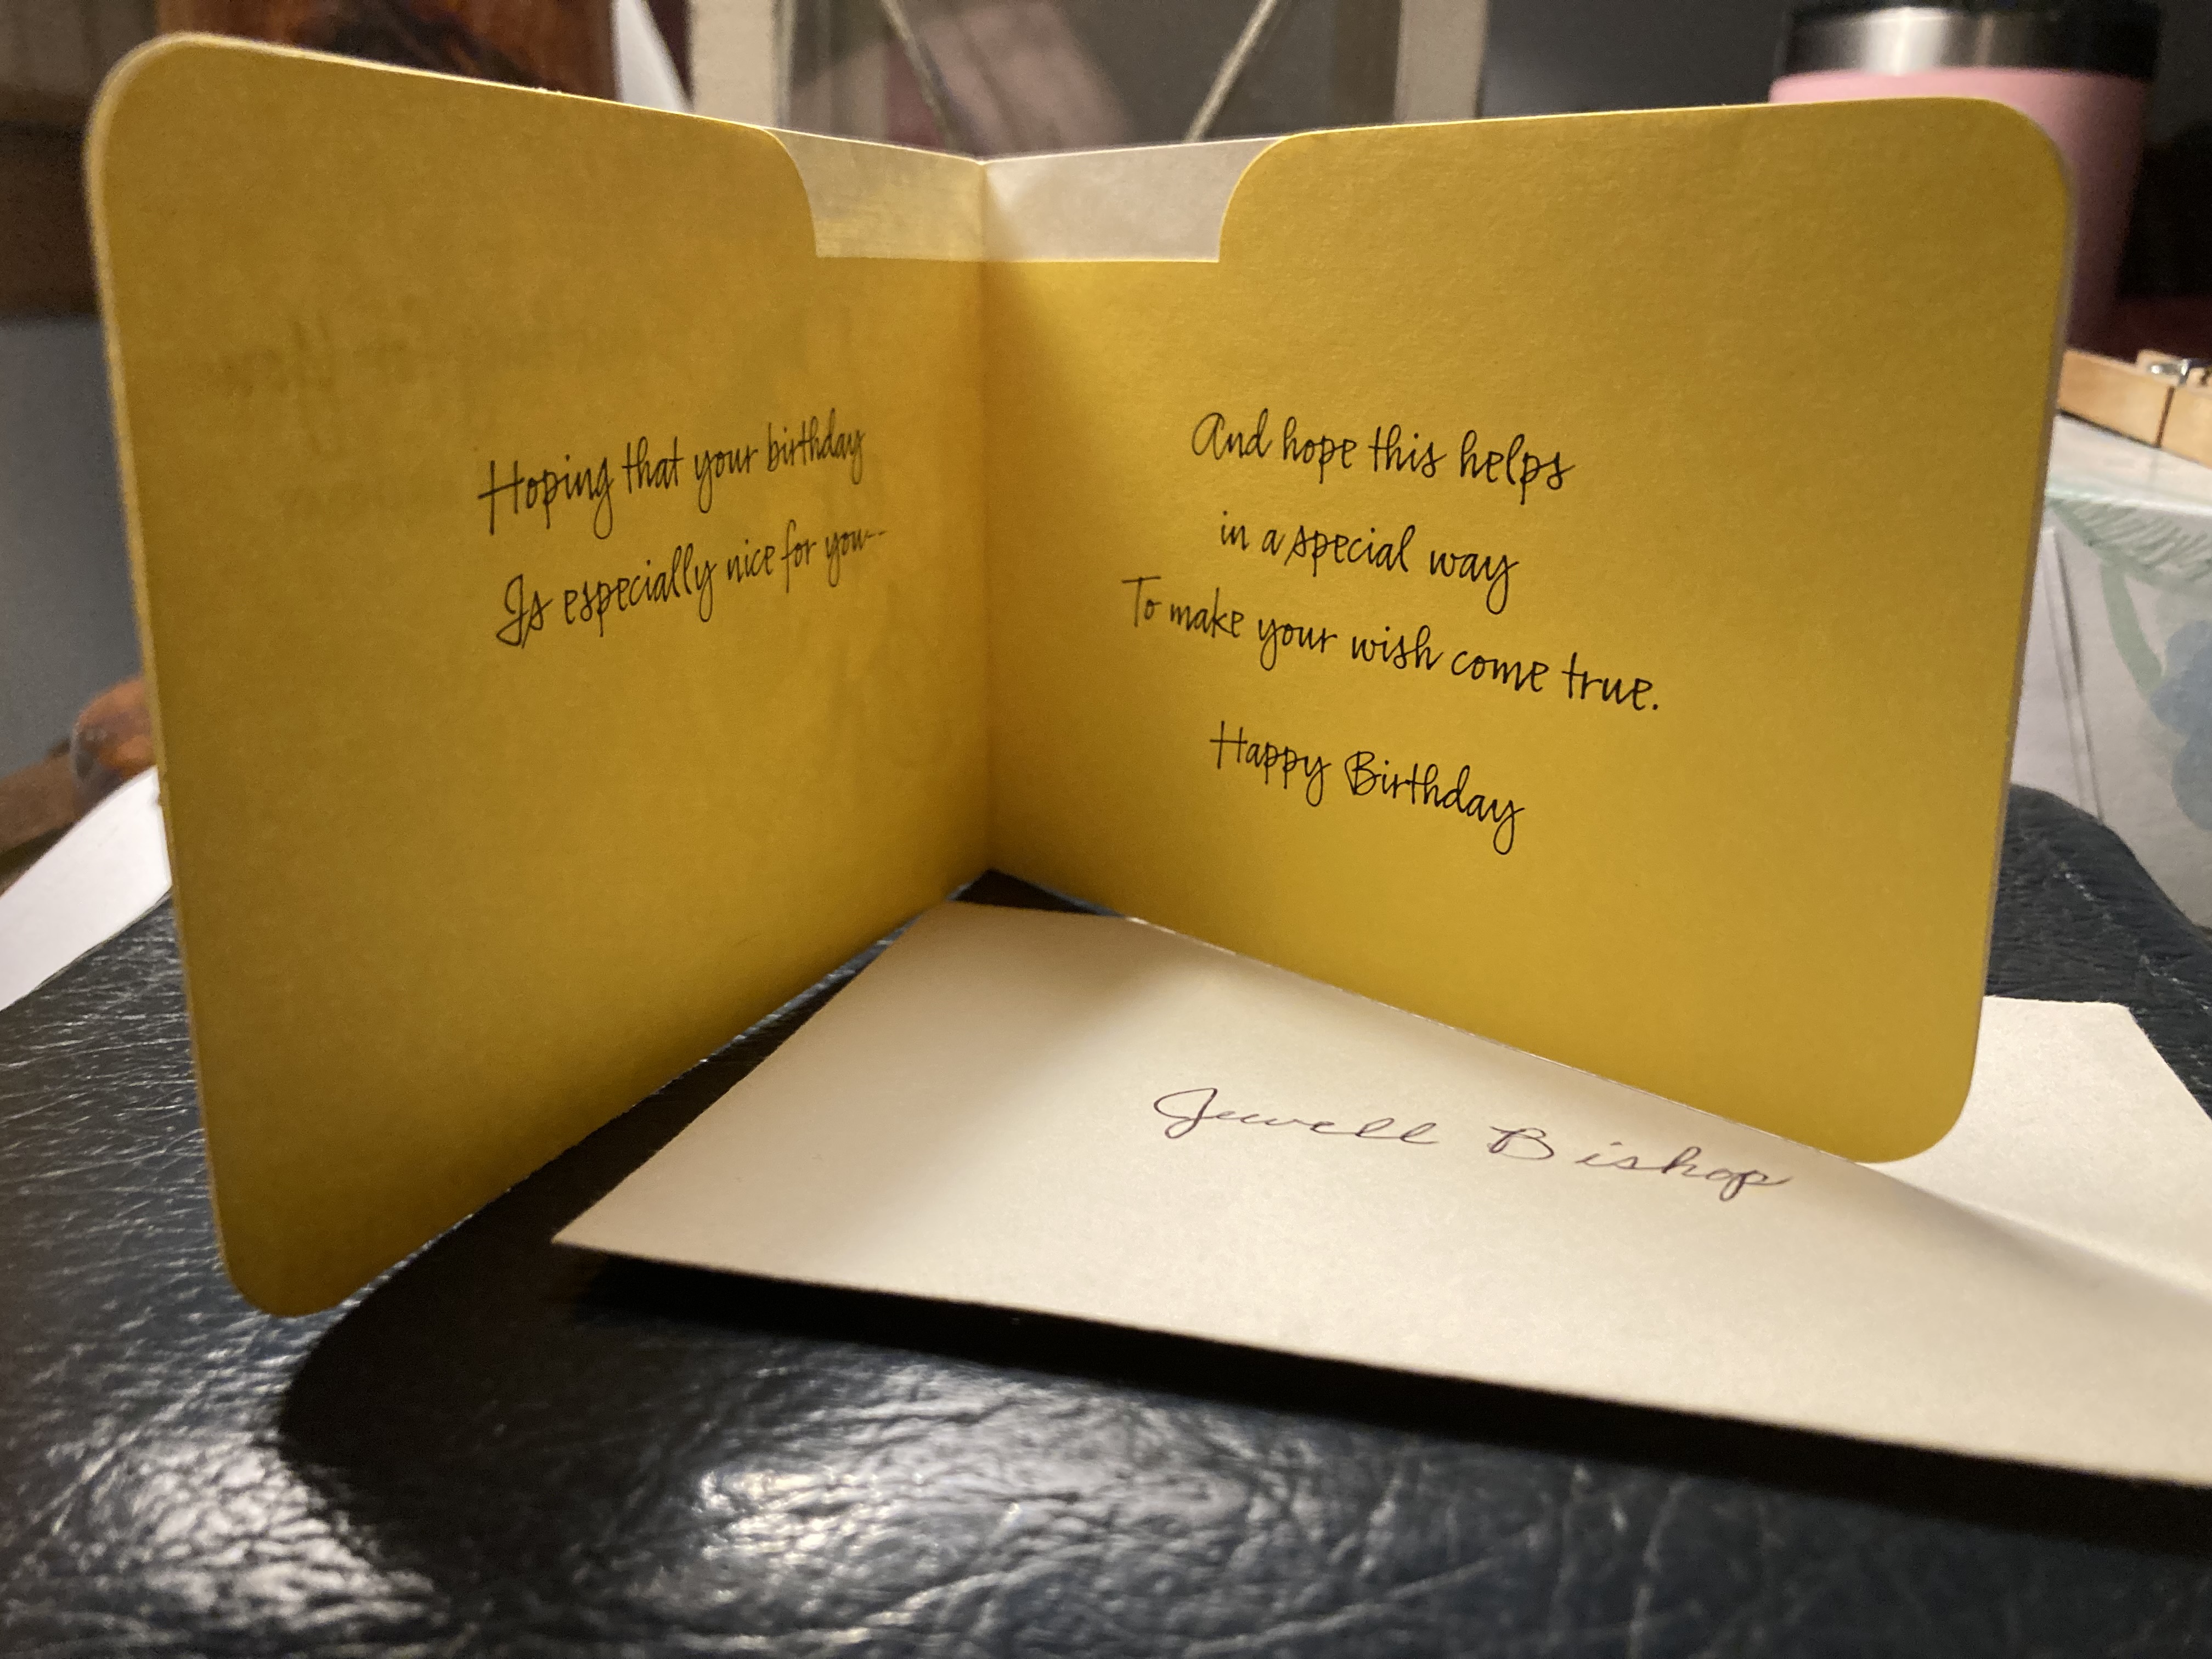 Hoping that your birthday
Is especially nice for you--
And hope this helps
in a special way
To make your wish come true.
Happy Birthday
Jewell Bishop